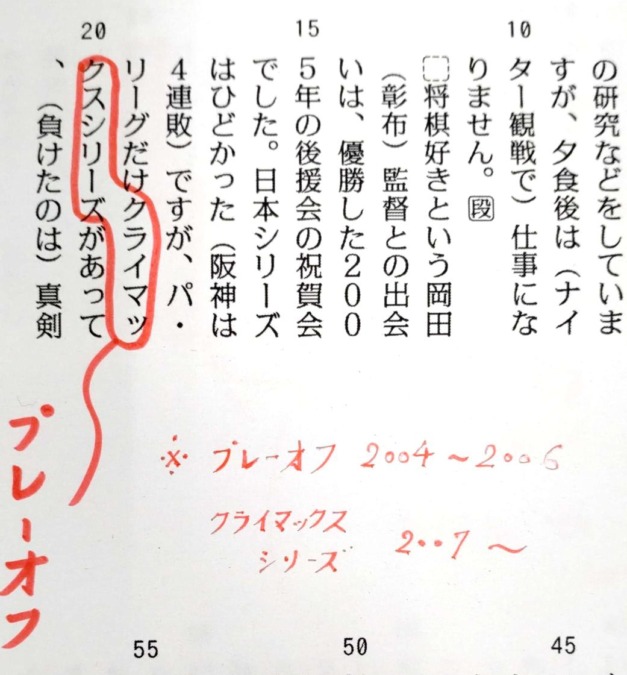 10
15
20
の研究などをしていま
すが、夕食後は（ナイ
ター観戦で）仕事にな
りません。段
将棋好きという岡田
（彰布）監督との出会
いは、優勝した２００
５年の後援会の祝賀会
でした。日本シリーズ
はひどかった（阪神は
４連敗）ですが、パ・
リーグだけクライマッ
クスシリーズがあって
、（負けたのは）真剣
プレーオフ
※ プレーオフ 2004～2006
クライマックス
シリーズ 2007～
45
50
55